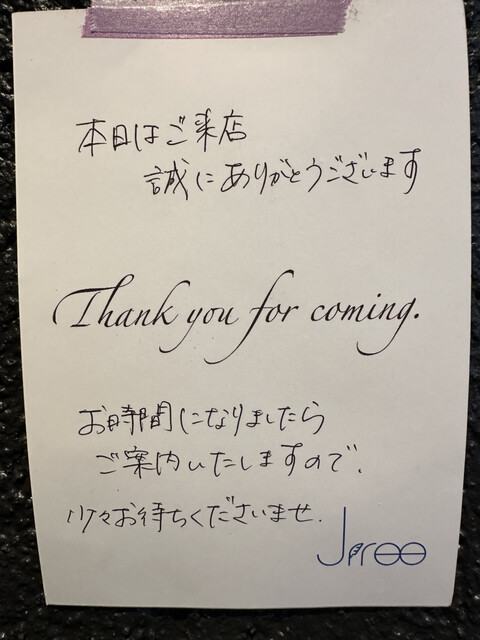 本日はご来店
誠にありがとうございます
Thank you for coming.
お時間になりましたら
ご案内いたしますので、
少々お待ちくださいませ.